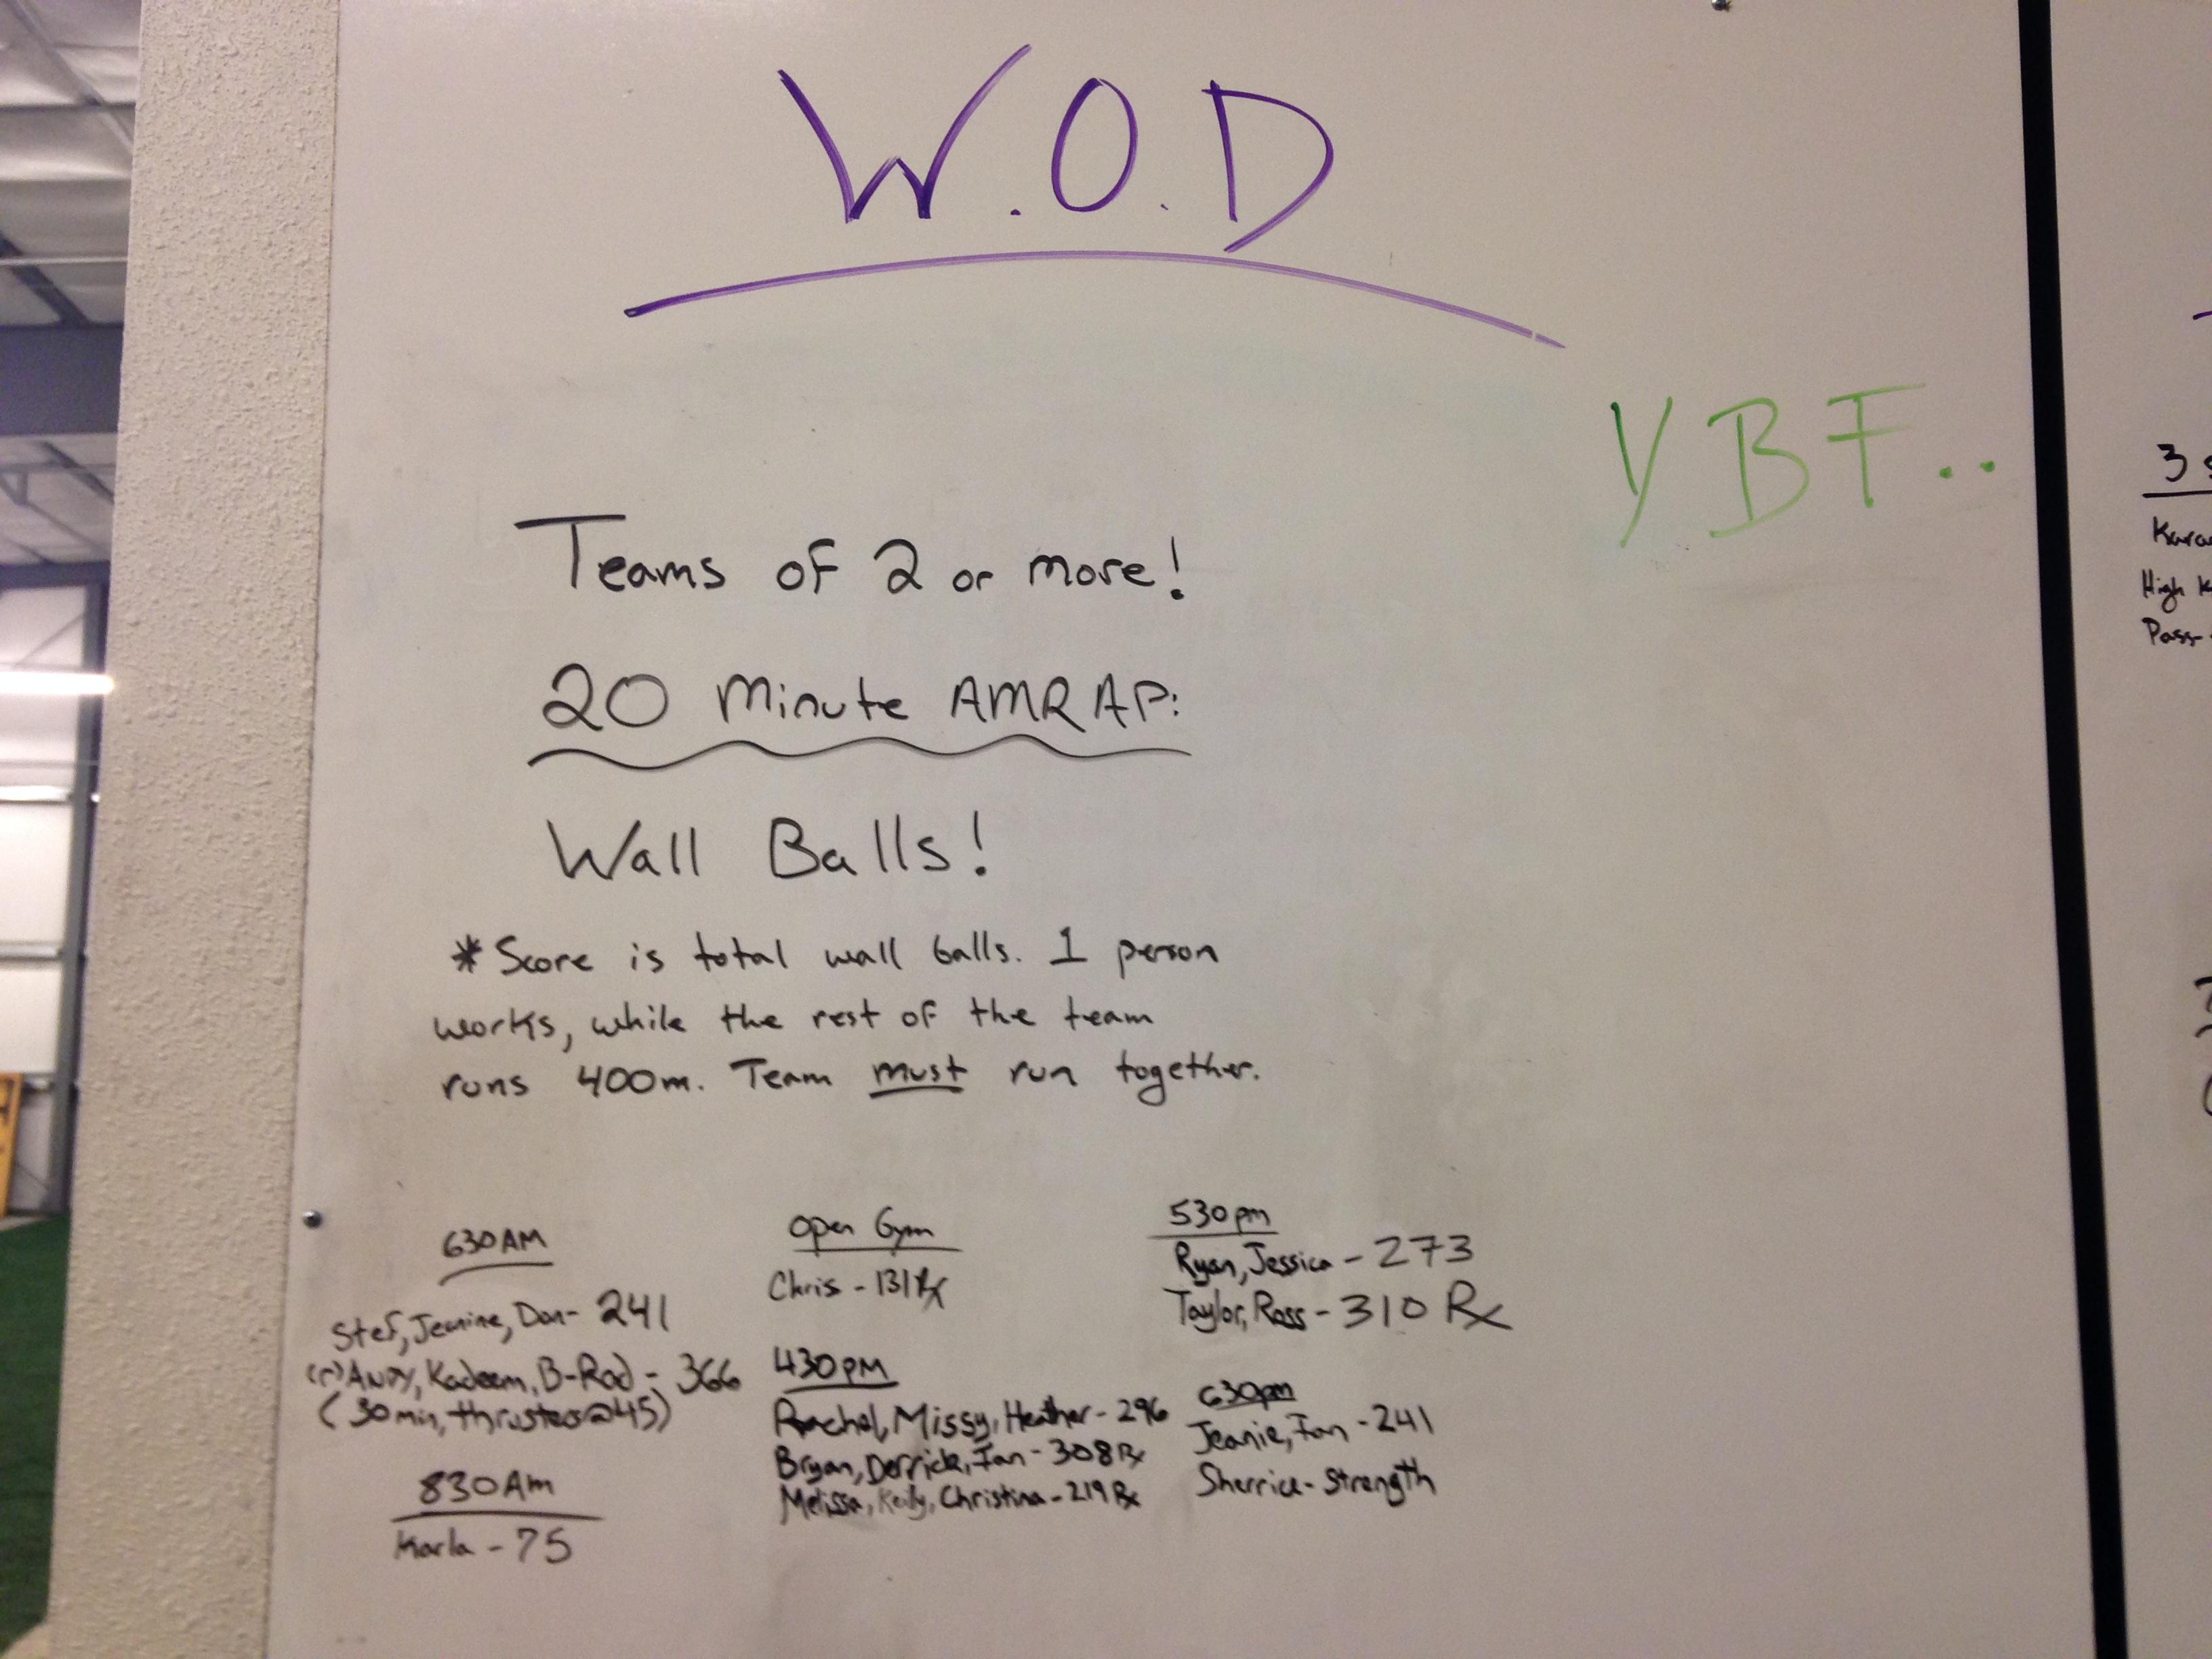 W.O.D
YBF..
Teams of 2 or more!
20 Minute AMRAP:
Wall Balls!
*Score is total wall balls. 1 person
works, while the rest of the team
runs 400m. Team must run together.
630AM
Stef, Jeanine, Dan- 241
(r) ANDY, Kadeem, B-Rod - 366
(30 min, thrusters@45)
830Am
Karla - 75
open Gym
Chris - 131 Rx
430PM
Rachel, Missy, Heather - 296
Bryan, Derrick, Ian - 308 Rx
Melissa, Keily, Christina - 219 Rx
530pm
Ryan, Jessica - 273
Taylor, Ross - 310 Rx
630pm
Jeanie, Ian - 241
Sherrice- Strength
3
High
Pass-